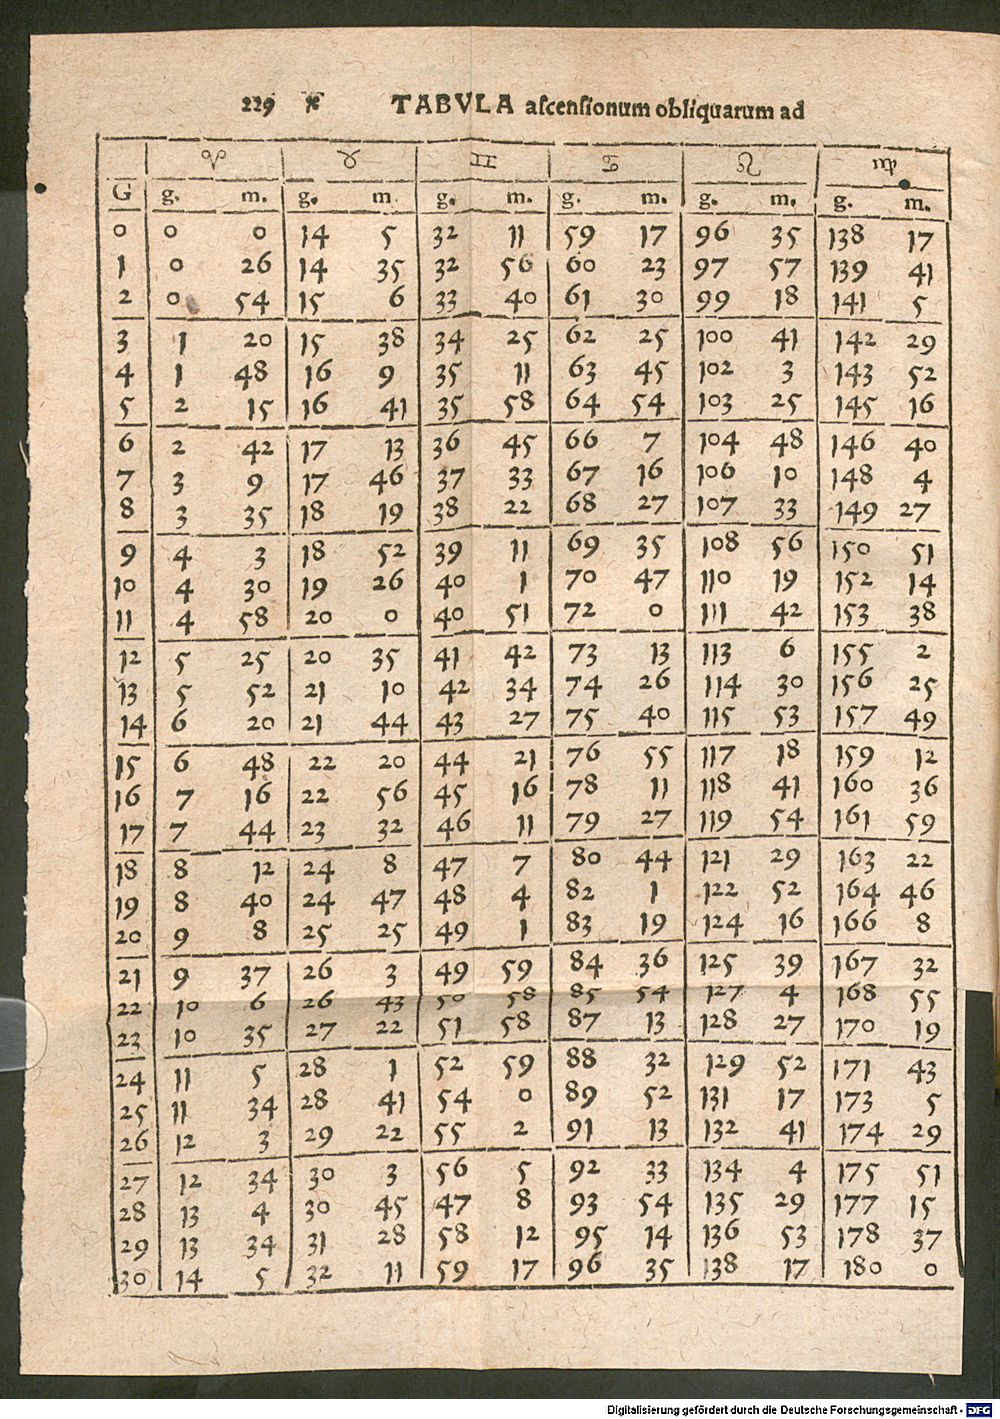 229 * TABVLA aſcenſionum obliquarum ad
♈ ♉ ♊ ♋ ♌ ♍
G g. m. g. m g. m. g. m. g. m. g. m.
0 0 0 14 5 32 11 59 17 96 35 138 17
1 0 26 14 35 32 56 60 23 97 57 139 41
2 0 54 15 6 33 40 61 30 99 18 141 5
3 1 20 15 38 34 25 62 25 100 41 142 29
4 1 48 16 9 35 11 63 45 102 3 143 52
5 2 15 16 41 35 58 64 54 103 25 145 16
6 2 42 17 13 36 45 66 7 104 48 146 40
7 3 9 17 46 37 33 67 16 106 10 148 4
8 3 35 18 19 38 22 68 27 107 33 149 27
9 4 3 18 52 39 11 69 35 108 56 150 51
10 4 30 19 26 40 1 70 47 110 19 152 14
11 4 58 20 0 40 51 72 0 111 42 153 38
12 5 25 20 35 41 42 73 13 113 6 155 2
13 5 52 21 10 42 34 74 26 114 30 156 25
14 6 20 21 44 43 27 75 40 115 53 157 49
15 6 48 22 20 44 21 76 55 117 18 159 12
16 7 16 22 56 45 16 78 11 118 41 160 36
17 7 44 23 32 46 11 79 27 119 54 161 59
18 8 12 24 8 47 7 80 44 121 29 163 22
19 8 40 24 47 48 4 82 1 122 52 164 46
20 9 8 25 25 49 1 83 19 124 16 166 8
21 9 37 26 3 49 59 84 36 125 39 167 32
22 10 6 26 43 50 58 85 54 127 4 168 55
23 10 35 27 22 51 58 87 13 128 27 170 19
24 11 5 28 1 52 59 88 32 129 52 171 43
25 11 34 28 41 54 0 89 52 131 17 173 5
26 12 3 29 22 55 2 91 13 132 41 174 29
27 12 34 30 3 56 5 92 33 134 4 175 51
28 13 4 30 45 47 8 93 54 135 29 177 15
29 13 34 31 28 58 12 95 14 136 53 178 37
30 14 5 32 11 59 17 96 35 138 17 180 0
Digitalisierung gefördert durch die Deutsche Forschungsgemeinschaft - DFG